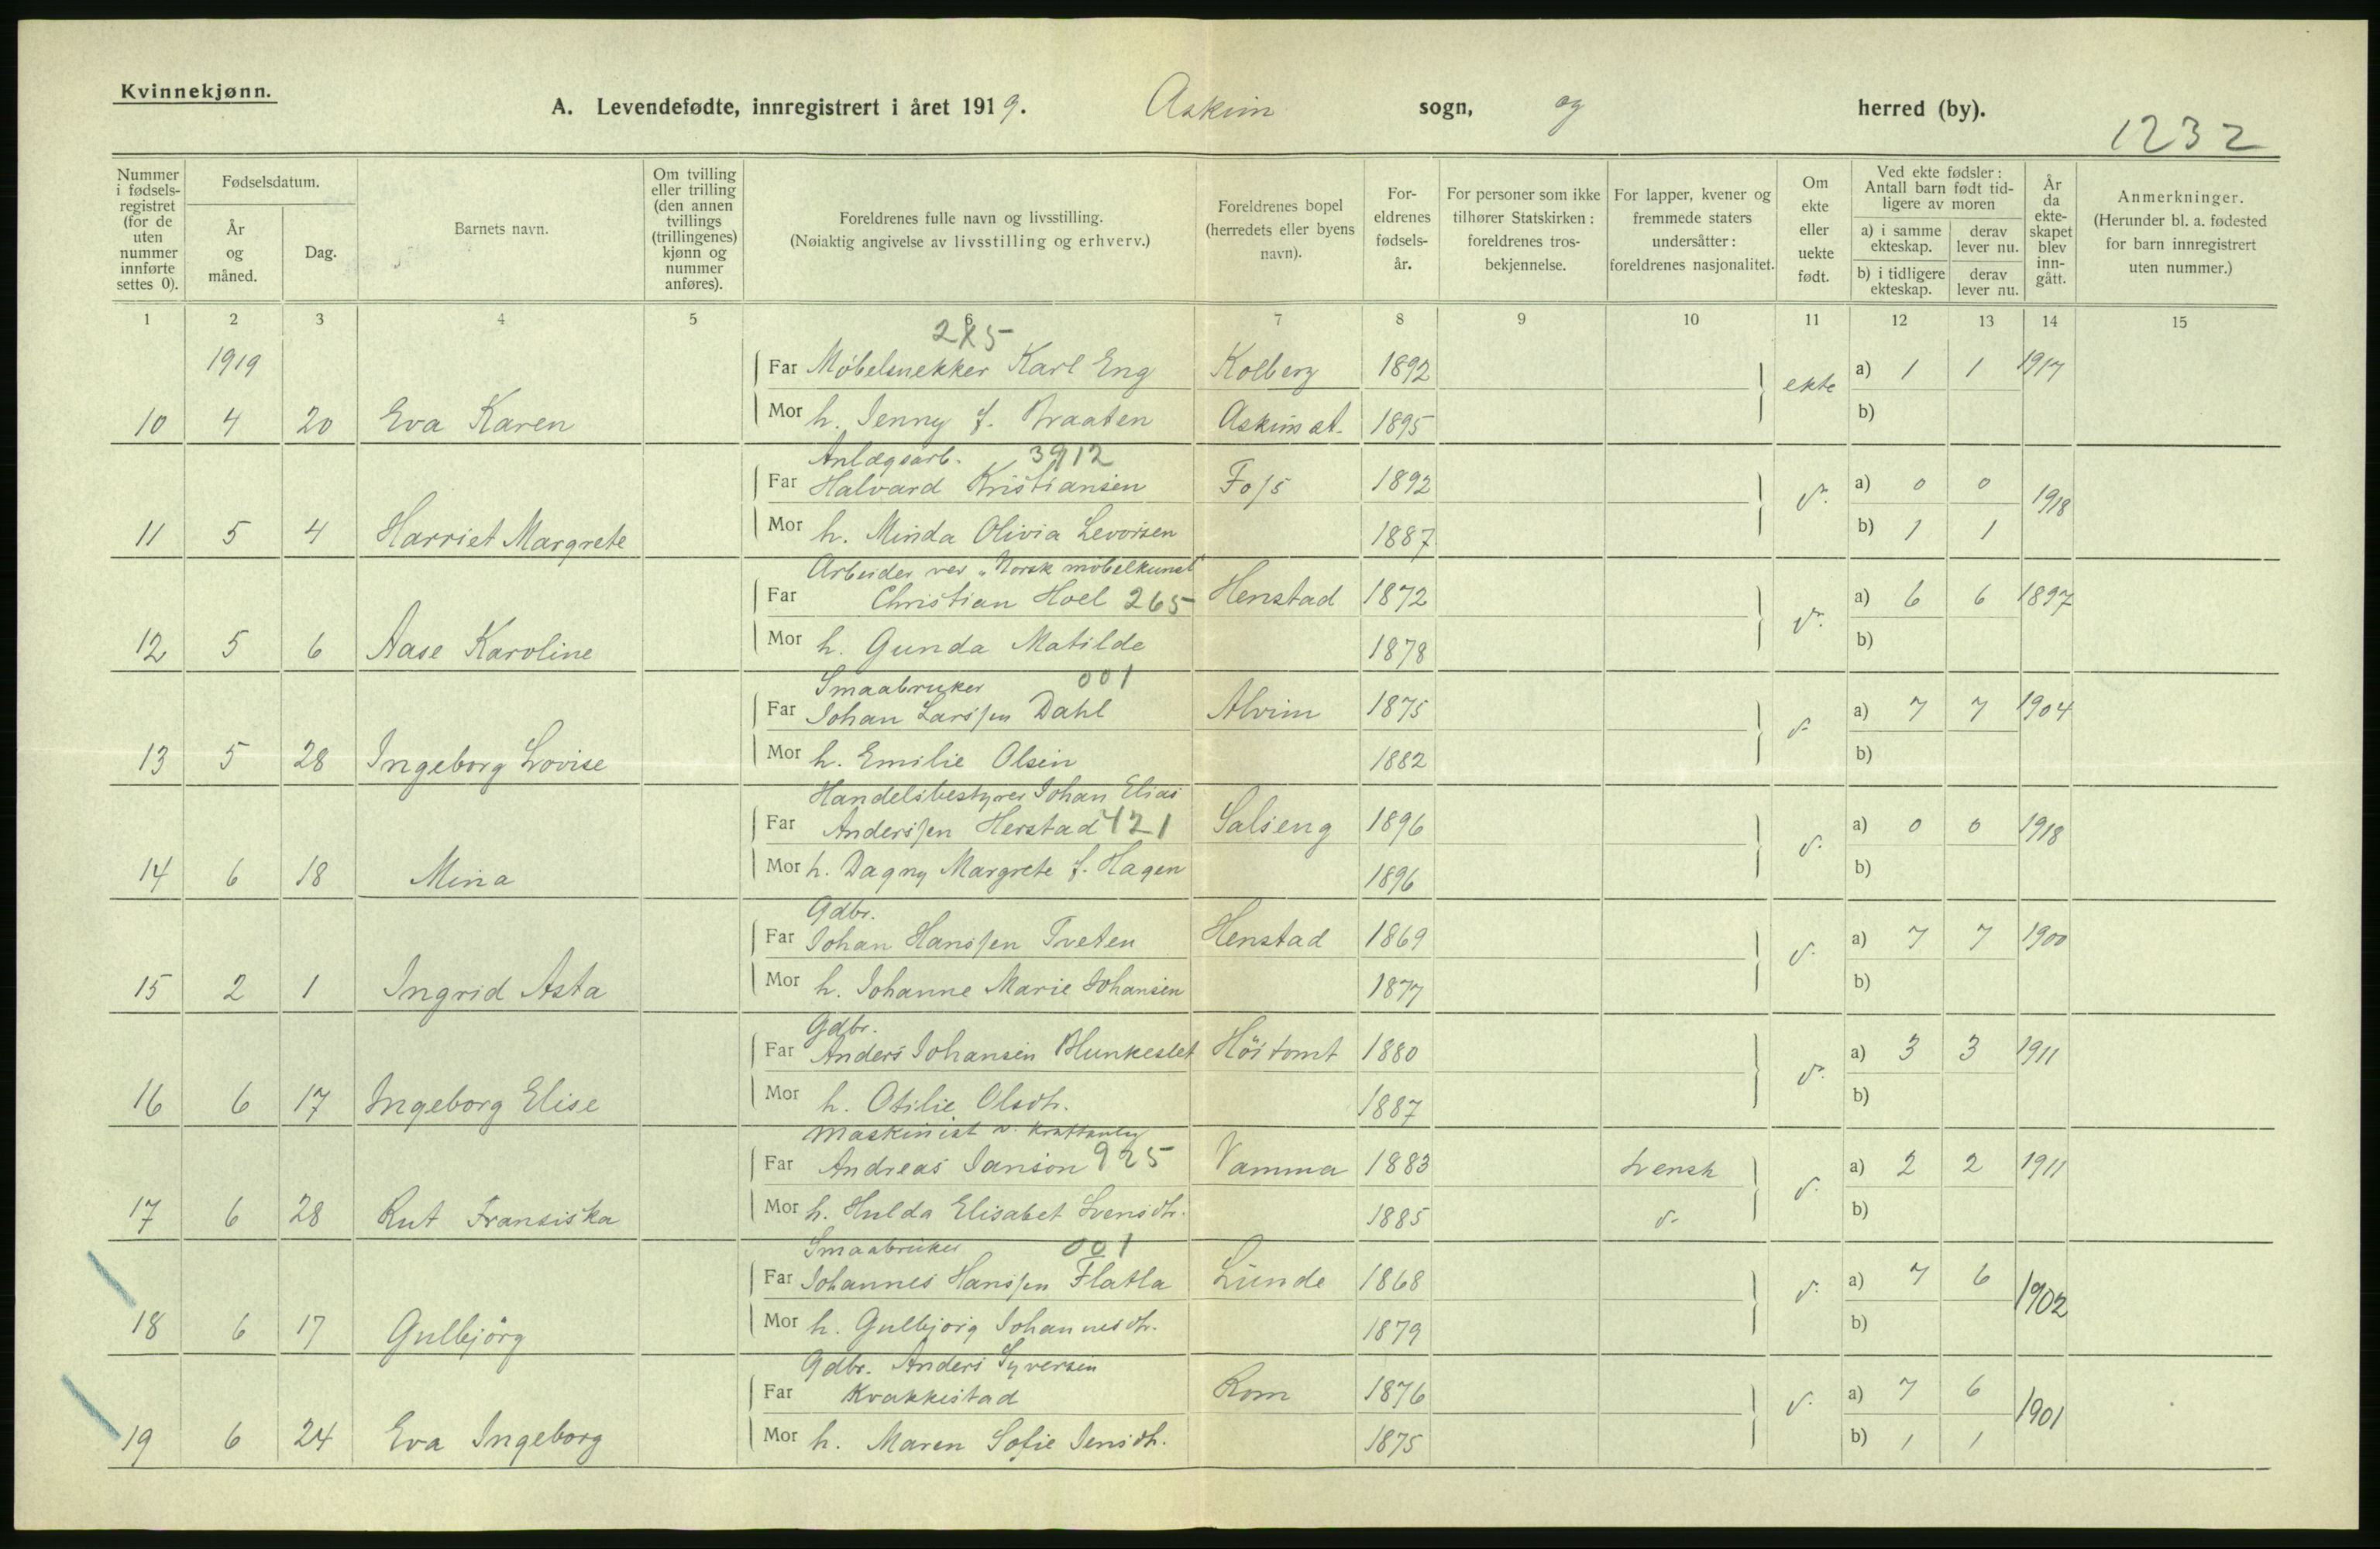 Kvinnekjønn.
A. Levendefødte, innregistrert i året 1919. Askim sogn, og herred (by).
1232
Nummer i fødsels-registret (for de uten nummer innførte settes 0).
Fødselsdatum.
År og måned.
Dag.
Barnets navn.
Om tvilling eller trilling (den annen tvillings (trillingenes) kjønn og nummer anføres).
Foreldrenes fulle navn og livsstilling.
(Nøiaktig angivelse av livsstilling og erhverv.)
Foreldrenes bopel (herredets eller byens navn).
For-eldrenes fødsels-år.
For personer som ikke tilhører Statskirken: foreldrenes tros-bekjennelse.
For lapper, kvener og fremmede staters undersåtter: foreldrenes nasjonalitet.
Om ekte eller uekte født.
Ved ekte fødsler: Antall barn født tid-ligere av moren
a) i samme ekteskap. derav lever nu.
b) i tidligere ekteskap. derav lever nu.
År da ekte-skapet blev inn-gått.
Anmerkninger.
(Herunder bl. a. fødested for barn innregistrert uten nummer.)
1 2 3 4 5 6 7 8 9 10 11 12 13 14 15
285
1919 Far Møbelsnekker Karl Eng Kolberg 1892 ekte a) 1 1 1917
10 4 20 Eva Karen Mor h. Jenny f. Braaten Askim st. 1895 b)
Anlægsarb. 3912
Far Halvard Kristiansen Foss 1892 d. a) 0 0 1918
11 5 4 Harriet Margrete Mor h. Minda Olivia Levorsen 1887 b) 1 1
Arbeider ved "Norsk møbelkunst"
Far Christian Hoel 265 Henstad 1872 d. a) 6 6 1897
12 5 6 Aase Karoline Mor h. Gunda Matilde 1878 b)
Smaabruker 001
Far Johan Larssen Dahl Alvim 1875 d. a) 7 7 1904
13 5 28 Ingeborg Lovise Mor h. Emilie Olsen 1882 b)
Handelsbestyrer Johan Elias
Far Anderssen Herstad 421 Galseng 1896 d. a) 0 0 1918
14 6 18 Mina Mor h. Dagny Margrete f. Hagen 1896 b)
Gdbr.
Far Johan Hanssen Tveten Henstad 1869 d. a) 7 7 1900
15 2 1 Ingrid Asta Mor h. Johanne Marie Johansen 1877 b)
Gdbr.
Far Anders Johansen Blunkeslet Höitomt 1880 d. a) 3 3 1911
16 6 17 Ingeborg Elise Mor h. Otilie Olsdtr. 1887 b)
Maskinist v. Kraftanlæg
Far Andreas Janson 925 Vamma 1883 svensk d. a) 2 2 1911
17 6 28 Rut Fransiska Mor h. Hulda Elisabet Svensdtr. 1885 d. b)
Smaabruker 001
Far Johannes Hanssen Flatla Lunde 1868 d. a) 7 6 1902
18 6 17 Gulbjörg Mor h. Gulbjörg Johannesdtr. 1879 b)
Gdbr. Anders Syversen
Far Kvakkestad Rom 1876 d. a) 7 6 1901
19 6 24 Eva Ingeborg Mor h. Maren Sofie Jensdtr. 1875 b) 1 1